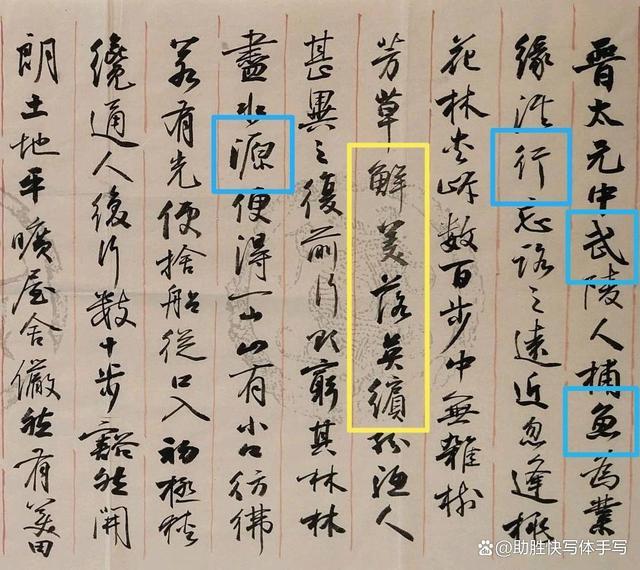 晉太元中武陵人捕魚為業
緣溪行忘路之遠近忽逢桃
花林夾岸數百步中無雜樹
芳草鮮美落英繽紛漁人
甚異之復前行欲窮其林林
盡水源便得一山山有小口彷彿
若有光便捨船從口入初極狹
纔通人復行數十步豁然開
朗土地平曠屋舍儼然有美田
@助胜快写体手写